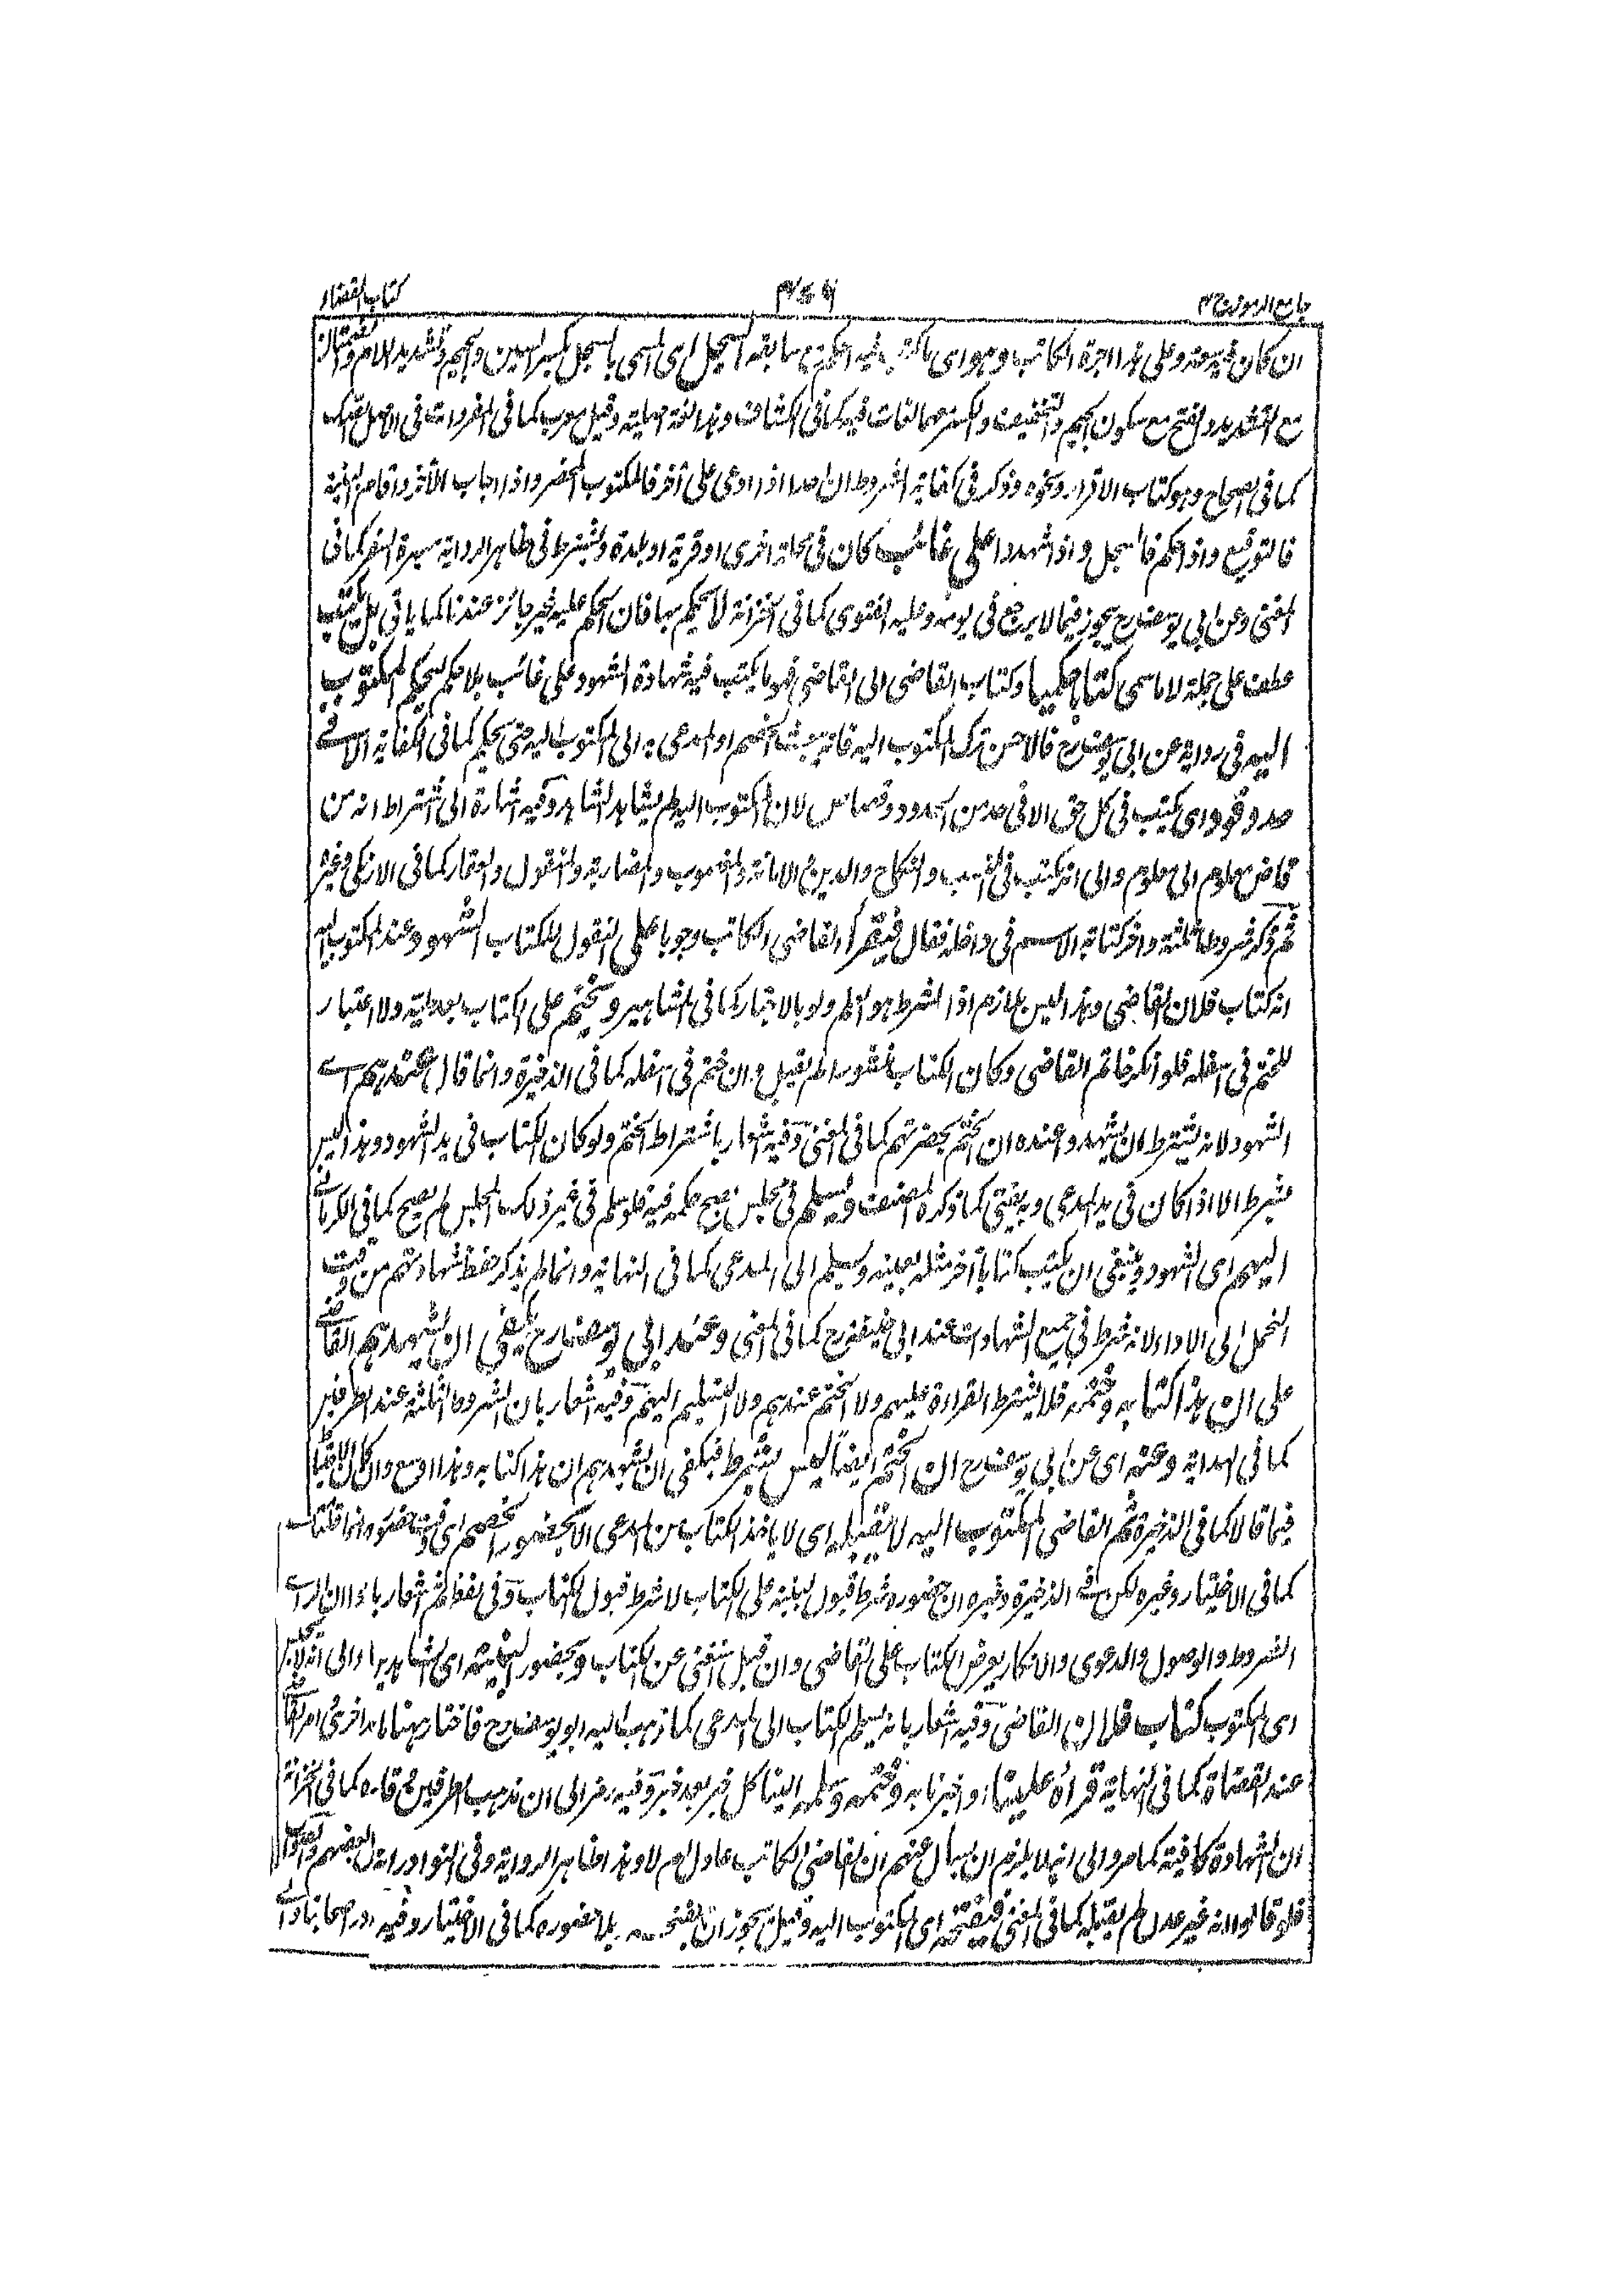 جامع الرموز ج ٢
كتاب القضاء
ان كان فيه سعة وعلى هذا اجرة الكاتب وهو اى ما كتب فيه الحكم سابقه السجل اى المسمى بالسجل بكسر السين والجيم وتشديد اللام والضمتان
مع التشديد والفتح مع سكون الجيم والتخفيف والكسر معها لغات فيه كما فى الكشاف وهذا لغة وقيل معرب كما فى المفردات فى الاصل الصك
كما فى الصحاح وهو كتاب الاقرار ونحوه وذكر فى كفاية الشروط ان احدا اذا ادعى على آخر فالمكتوب المحضر واذا اجاب الآخر واقام البينة
فالتوقيع واذا حكم فالسجل واذا شهدوا على غائب كان فى محلة اخرى او قرية او بلدة ويشترط فى ظاهر الرواية مسيرة السفر كما فى
المغنى وعن ابى يوسف رح يجوز فيما لا يرجع فى يومه وعليه الفتوى كما فى الخزانة لا يحكم بها فان الحكم عليه غير جائز عندنا كما ياتى بل يكتب
عطف على جملة لا ما سمى كتابا حكميا وكتاب القاضى الى القاضى فهو ما يكتب فيه شهادة الشهود على غائب بلا حكم ليحكم المكتوب
اليه فى رواية عن ابى يوسف رح فالاحسن ترك المكتوب اليه فانه يبعث الخصم او المدعى به الى المكتوب اليه حتى يحكم كما فى الكفاية الا فى
حد وقود اى يكتب فى كل حق الا فى حد من الحدود وقصاص لان المكتوب اليه لم يشاهد الشاهد وفيه اشارة الى اشتراط انه من
قاض معلوم الى معلوم والى انه يكتب فى النسب والنكاح والدين والامانة والمغصوب والمضاربة والمنقول والعقار كما فى الزنكى وغيره
ثم ذكر شروطا ثلثة واخر كتابة الاسم فى داخله فقال فيقرأ القاضى الكاتب وجوبا على المنقول الكتاب الشهود عند المكتوب اليه
انه كتاب فلان القاضى وهذا ليس بلازم اذ الشرط هو العلم ولو بالاخبار كما فى المشاهير ويختم على الكتاب بعد طيه ولا اعتبار
للختم فى اسفله فلو انكر خاتم القاضى وكان الكتاب منشورا لم يقبل وان ختم فى اسفله كما فى الذخيرة وانما قال عندهم اى
الشهود لانه يشترط ان يشهدوا عنده ان الختم بحضرتهم كما فى المغنى وفيه اشعار باشتراط الختم ولو كان الكتاب فى يد الشهود وهذا ليس
بشرط الا اذا كان فى يد المدعى وبه يفتى كما ذكره المصنف ويسلم فى مجلس يصح حكمه فيه فلو سلم فى غير ذلك المجلس لم يصح كما فى الكرمانى
اليهم اى الشهود وينبغى ان يكتب كتابا آخر مثله بعينه ويسلم الى المدعى كما فى النهاية وانما لم يذكر حفظ شهادتهم من وقت
التحمل الى الاداء لانه شرط فى جميع الشهادات عند ابى حنيفة رح كما فى المغنى وعند ابى يوسف رح يكفى ان يشهدهم القاضى
على ان هذا كتابه وختمه فلا يشترط القراءة عليهم ولا الختم عندهم ولا التسليم اليهم وفيه اشعار بان الشروط الثلثة عند الطرفين
كما فى الهداية وعنه اى عن ابى يوسف رح ان الختم ايضا ليس بشرط فيكفى ان يشهدهم ان هذا كتابه وهذا اوسع وان كان الاحتياط
فيما قالا كما فى الذخيرة ثم القاضى المكتوب اليه لا يقبله اى لا ياخذ الكتاب من المدعى الا بحضور الخصم اى وقت حضوره
كما فى الاختيار وغيره لكن فى الذخيرة وغيره ان حضوره شرط قبول البينة على الكتاب لا شرط قبول الكتاب وفى لفظ ثم اشعار
الشروط والوصول والدعوى والانكار يعرض الكتاب على القاضى وان قيل استغنى عن الكتاب وبحضور البينة اى الشاهد
اى المكتوب كتاب فلان القاضى وفيه اشعار بانه يسلم الكتاب الى المدعى كما ذهب اليه ابو يوسف رح فاختار ههنا
عند القضاة كما فى النهاية قرأه علينا واخبرنا به وختمه وسلمه الينا كل خبر بعد خبر وفيه رمز الى ان مذهب الطرفين كما فى الخزانة
ان الشهادة كافية كما مر والى انه لا يلزم ان يسال عنهم ان القاضى الكاتب عادل ام لا وهذا ظاهر الرواية وفى النوادر انه
فلو قالوا انه غير عدل لم يقبله كما فى المغنى فيفتحه اى المكتوب اليه وقيل يجوز ان يفتحه بلا حضوره كما فى الاختيار وفيه